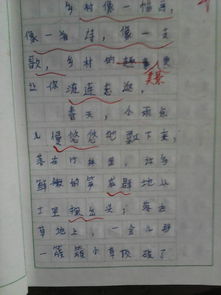 乡村像一幅画,
像一首诗,像一支
歌,乡村的 更
让你流连忘返。
春天,小雨点
儿慢悠悠地 下来,
落在竹林里,
鲜嫩的笋 地从
土里探出头;落在
草地上,一会儿那
一簇簇小草 破了